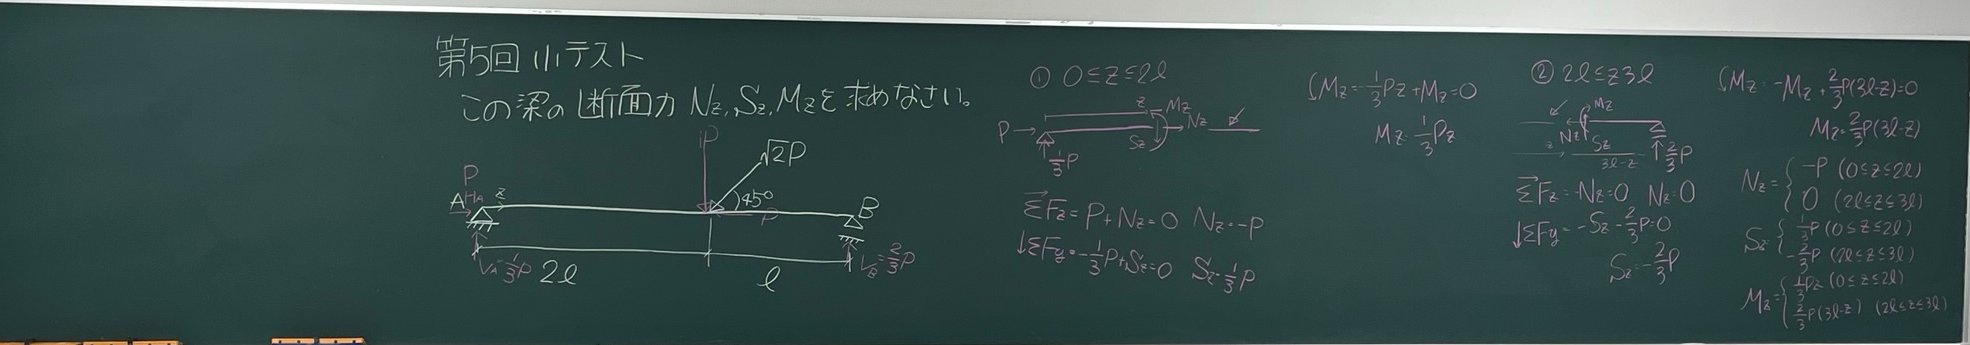 第5回 小テスト
この梁の断面力 Nz, Sz, Mzを求めなさい。
P
√2P
45°
P
P
A HA z
B
VA=1/3P 2l
l
VB=2/3P
① 0≤z≤2l
z Mz
P Nz
Sz
1/3P
ΣFz=P+Nz=0 Nz=-P
↓ΣFy=-1/3P+Sz=0 Sz=1/3P
Mz=-1/3Pz+Mz=0
Mz=1/3Pz
② 2l≤z3l
Mz
Nz Sz
z 3l-z 2/3P
ΣFz=-Nz=0 Nz=0
↓ΣFy=-Sz-2/3P=0
Sz=-2/3P
Mz=-Mz+2/3P(3l-z)=0
Mz=2/3P(3l-z)
Nz={-P (0≤z≤2l)
0 (2l≤z≤3l)
Sz={1/3P (0≤z≤2l)
-2/3P (2l≤z≤3l)
Mz={1/3Pz (0≤z≤2l)
2/3P(3l-z) (2l≤z≤3l)